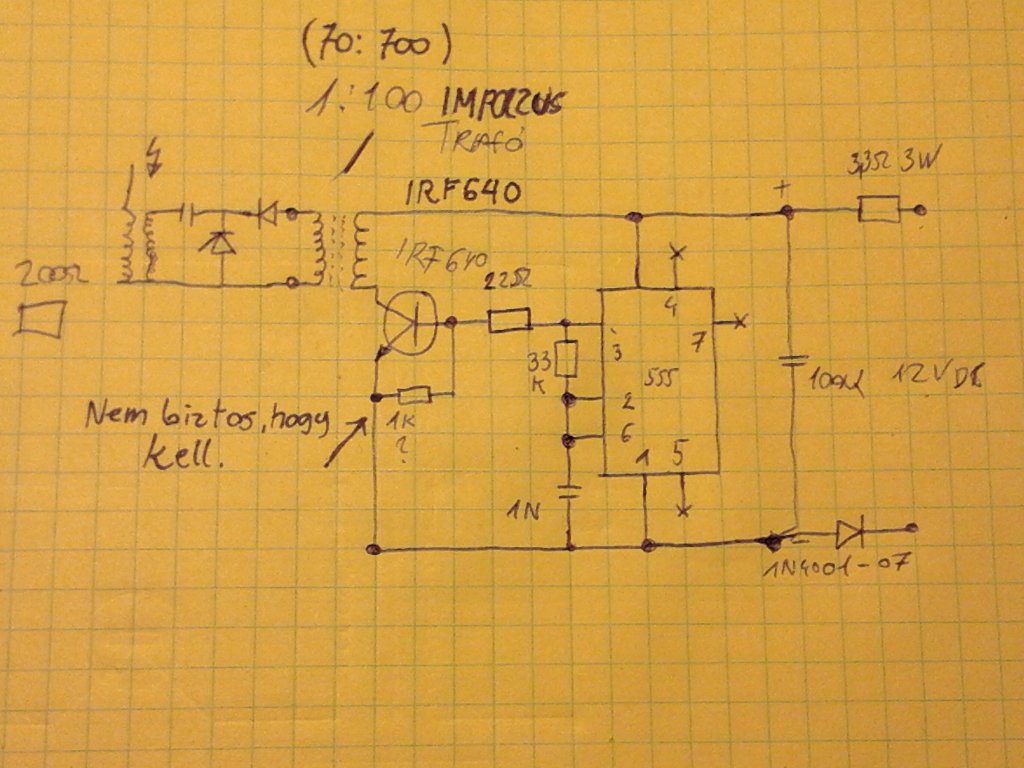 (70:700)
1:100 IMPOLZUS
TRAFÓ
3,3Ω 3W
+
IRF640
IRF640
200Ω
22Ω
4
3
7
33
K
555
100µ
12V DC
2
6
Nem biztos, hogy
kell.
1K
?
1
5
1N
-
1N4001-07